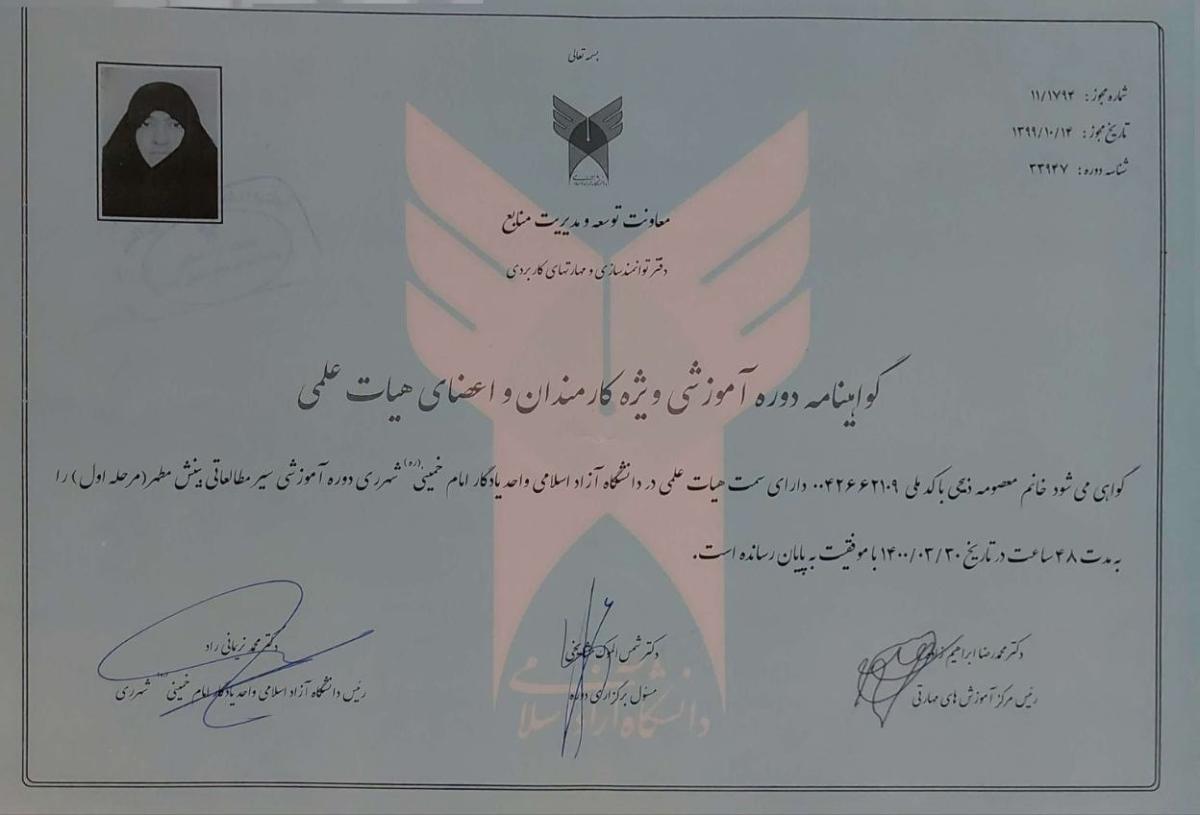 بسمه تعالی
شماره مجوز: ۱۱/۱۷۹۴
تاریخ مجوز: ۱۳۹۹/۱۰/۱۴
شناسه دوره: ۳۳۹۴۷
معاونت توسعه و مدیریت منابع
دفتر توانمندسازی و مهارتهای کاربردی
گواهینامه دوره آموزشی ویژه کارمندان و اعضای هیات علمی
گواهی می شود خانم معصومه ذبیحی با کد ملی ۰۰۴۲۶۶۲۱۰۹ دارای سمت هیات علمی در دانشگاه آزاد اسلامی واحد یادگار امام خمینی(ره) شهرری دوره آموزشی سیر مطالعاتی بینش مطهر (مرحله اول) را
به مدت ۴۸ ساعت در تاریخ ۱۴۰۰/۰۳/۳۰ با موفقیت به پایان رسانده است.
دکتر محمدرضا ابراهیم
رئیس مرکز آموزش های مهارتی
دکتر شمس الملوک
مسئول برگزاری دوره
دکتر محمد نریمانی راد
رئیس دانشگاه آزاد اسلامی واحد یادگار امام خمینی(ره) شهرری
دانشگاه آزاد اسلامی